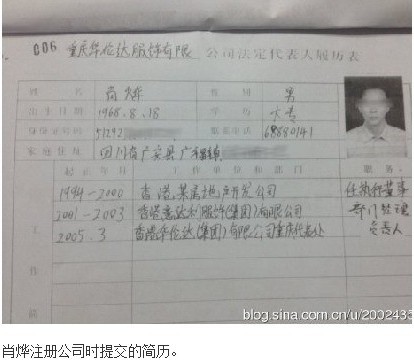 006 重庆华伦达服饰有限 公司法定代表人履历表
姓名 肖烨 性别 男
出生日期 1968.8.18 学历 大专
身份证号码 51292 联系电话 68880141
家庭住址 四川省广安县广福镇
起止年月 工作单位和部门 职务
1994-2000 香港某房地产开发公司 任执行董事
2001-2003 香港意达利服饰(集团)有限公司 部门经理
2005.3 香港华伦达(集团)有限公司重庆代表处 负责人
工
作
简
blog.sina.com.cn/u/2002433
肖烨注册公司时提交的简历。